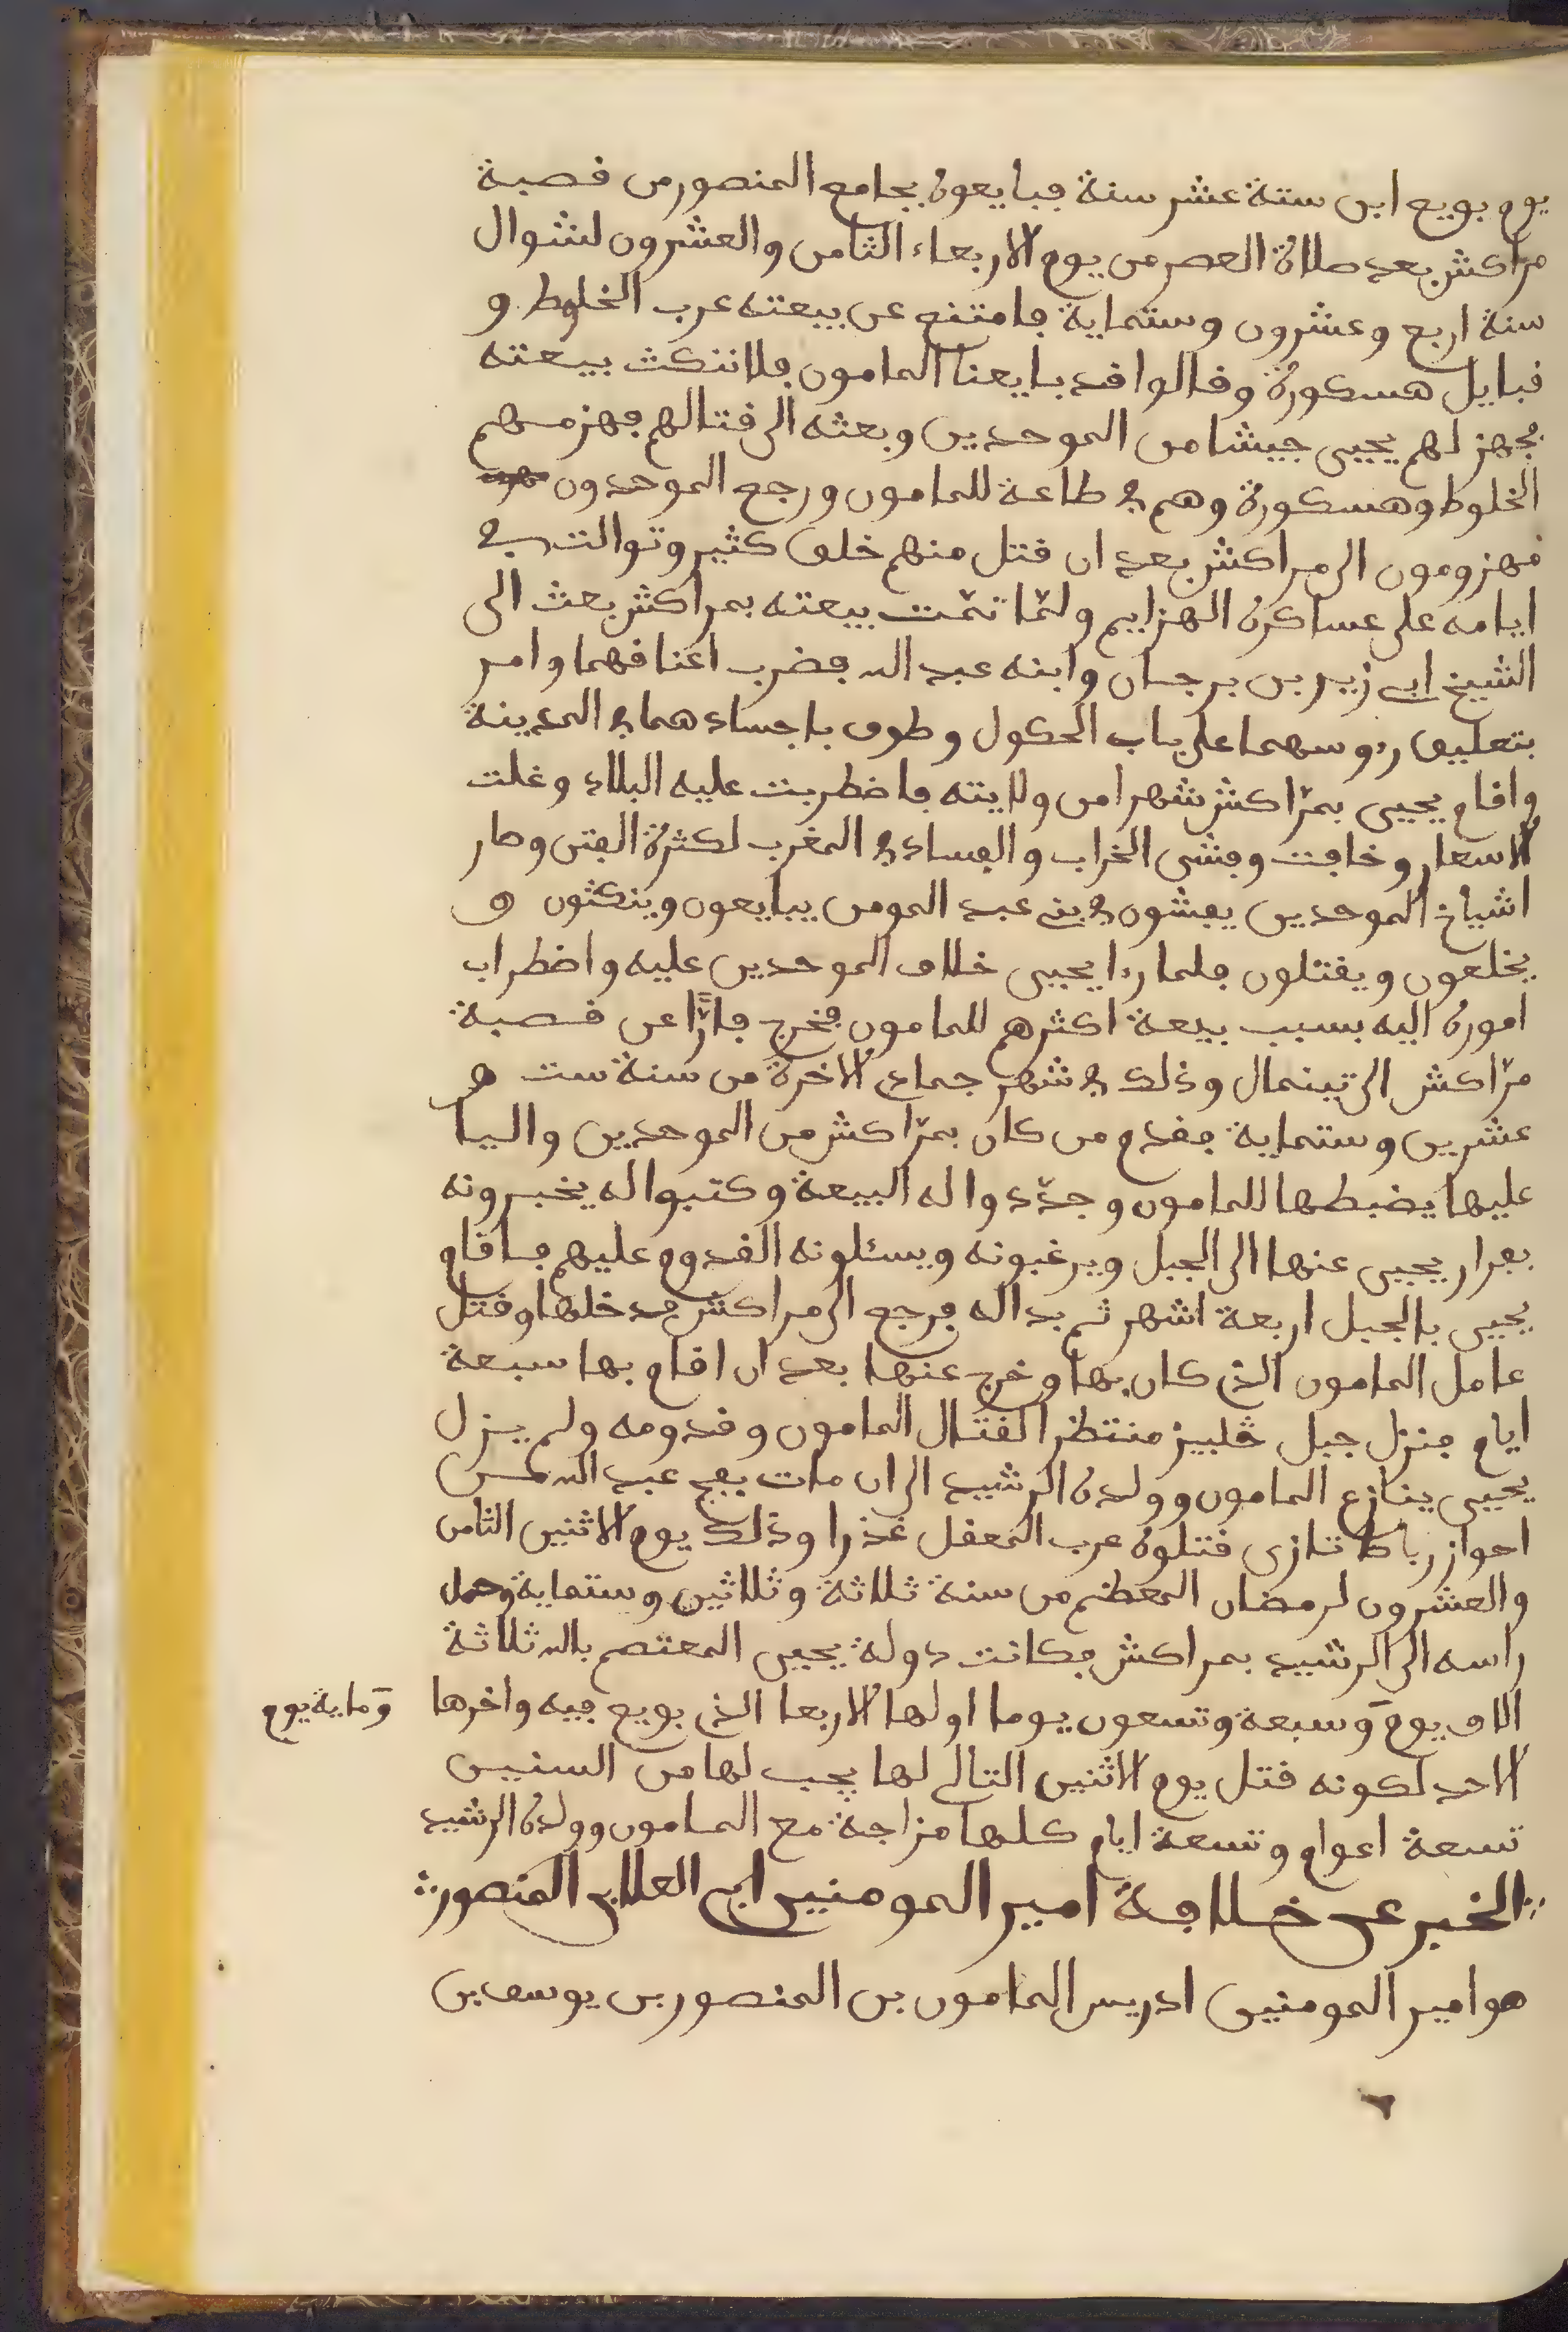 يوم بويع ابن ستة عشر سنة فبايعوه بجامع المنصور من قصبة
مراكش بعد صلاة العصر من يوم الاربعاء الثامن والعشرون لشوال
سنة اربع وعشرون وستماية فامتنع عن بيعته عرب الخلوط و
قبايل هسكورة وقالوا قد بايعنا المامون فلا ننكث بيعته
فجهز لهم يحيى جيشا من الموحدين وبعثه الى قتالهم فهزمهم
الخلوط وهسكورة وهم في طاعة للمامون ورجع الموحدون
مهزومون الى مراكش بعد ان قتل منهم خلق كثير وتوالت في
ايامه على عساكره الهزايم ولمّا تمّت بيعته بمراكش بعث الى
الشيخ ابي زيد بن برجان وابنه عبد الله فضرب اعناقهما وامر
بتعليق رءوسهما على باب الكحول وطوف باجسادهما في المدينة
واقام يحيى بمرّاكش شهرا من ولايته فاضطربت عليه البلاد وغلت
الاسعار وخافت وفشى الخراب والفساد في المغرب لكثرة الفتن وصار
اشياخ الموحدين يفشون في بني عبد المومن يبايعون وينكثون و
يخلعون ويقتلون فلما رءا يحيى خلاف الموحدين عليه واضطراب
اموره اليه بسبب بيعة اكثرهم للمامون فخرج فارًّا عن قصبة
مرّاكش الى تينمال وذلك في شهر جماد الاخرة من سنة ست و
عشرين وستماية فقدم من كان بمرّاكش من الموحدين واليا
عليها يضبطها للمامون وجدّدوا له البيعة وكتبوا له يخبرونه
بفرار يحيى عنها الى الجبل ويرغبونه ويسئلونه القدوم عليهم فاقام
يحيى بالجبل اربعة اشهر ثم بدا له فرجع الى مراكش فدخلها وقتل
عامل المامون الذي كان بها وخرج عنها بعد ان اقام بها سبعة
ايام فنزل جبل جليز منتظرا لقتال المامون وقدومه ولم يزل
يحيى ينازع المامون وولده الرشيد الى ان مات بفج عبد الله من
احواز رباط تازى قتلوه عرب المعقل غذرا وذلك يوم الاثنين الثامن
والعشرون لرمضان المعظم من سنة ثلاثة وثلاثين وستماية وحمل
راسه الى الرشيد بمراكش فكانت دولة يحيى المعتصم بالله ثلاثة
الاف يوم وسبعة وتسعون يوما اولها الاربعا الذي بويع فيه واخرها
وماية يوم
الاحد لكونه قتل يوم الاثنين التالي لها يجب لها من السنين
تسعة اعوام وتسعة ايام كلها مزاجة مع المامون وولده الرشيد
الخبر عن خلافة امير المومنين ابي العلا بن المنصور
هو امير المومنين ادريس المامون بن المنصور بن يوسف بن